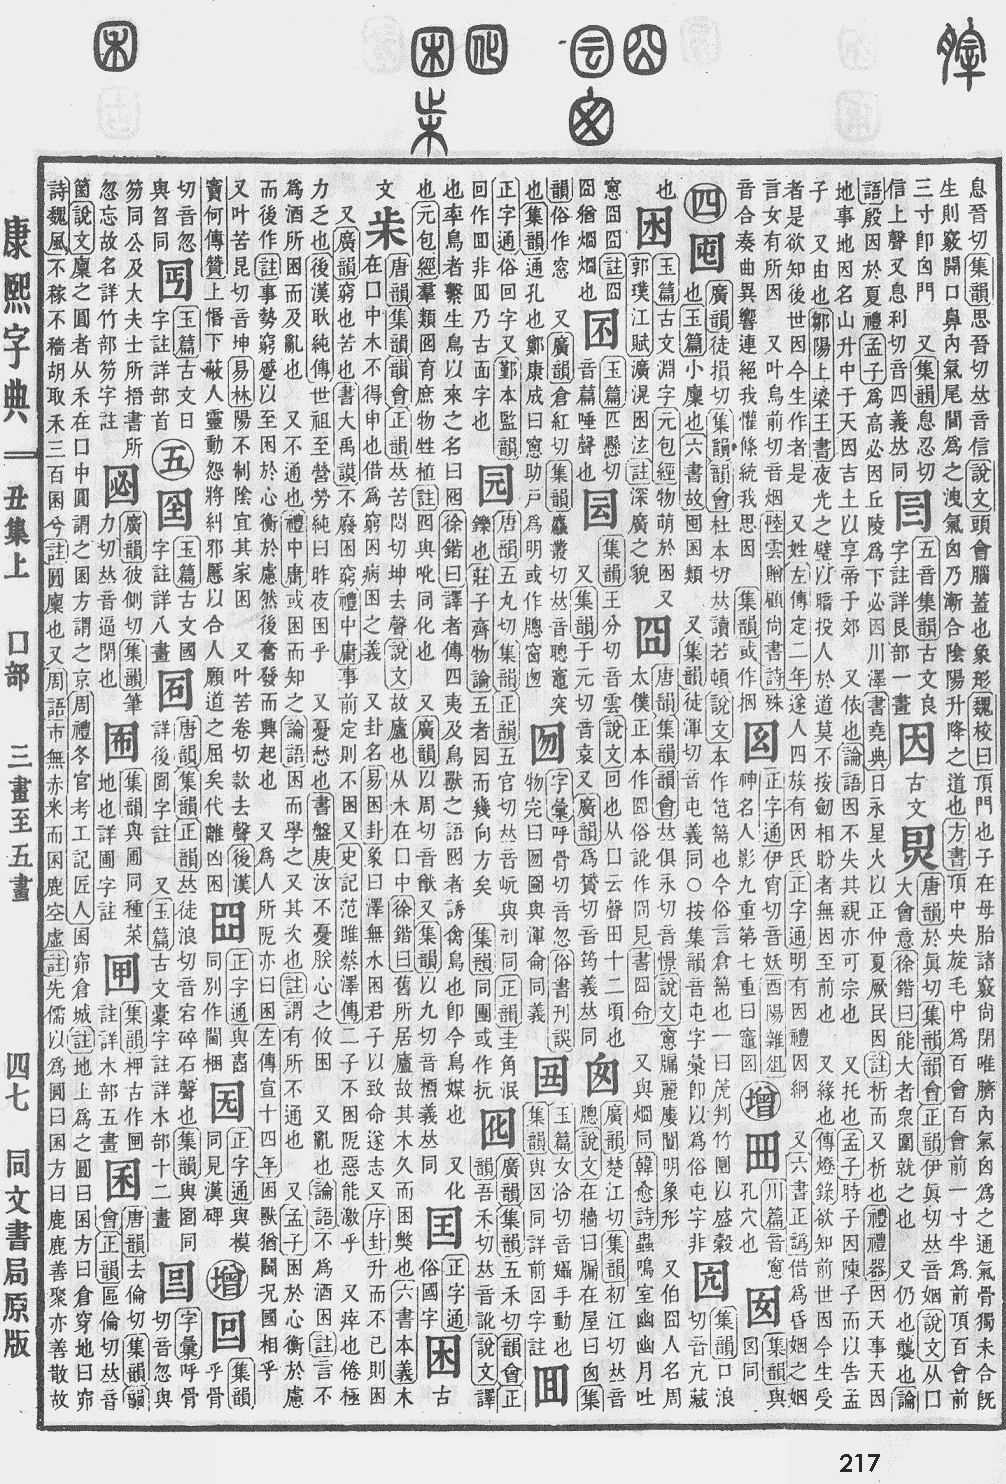 息晉切集韻思晉切𠀤音信說文頭會腦蓋也象形魏校曰頂門也子在母胎諸竅尚閉唯臍內氣囟爲之通氣骨獨未合旣
生則竅開口鼻內氣尾閭爲之洩氣囟乃漸合陰陽升降之道也方書頂中央旋毛中爲百會百會前一寸半爲前頂百會前
三寸卽囟門 又集韻息忍切
信上聲又息利切音四義𠀤同
五音集韻古文艮
字註詳艮部一畫
因 古文
唐韻於眞切集韻韻會正韻伊眞切𠀤音姻說文从口
大會意徐鍇曰能大者衆圍就之也 又仍也襲也論
語殷因於夏禮孟子爲高必因丘陵爲下必因川澤書堯典日永星火以正仲夏厥民因註析而又析也禮禮器因天事天因
地事地因名山升中于天因吉土以享帝于郊 又依也論語因不失其親亦可宗也 又托也孟子時子因陳子而以告孟
子 又由也鄒陽上梁王書夜光之璧以暗投人於道莫不按劒相盼者無因至前也 又緣也傳燈錄欲知前世因今生受
者是欲知後世因今生作者是 又姓左傳定二年遂人四族有因氏正字通明有因禮因絅 又六書正譌借爲昏姻之姻
言女有所因 又叶烏前切音烟陸雲贈顧尚書詩殊
音合奏曲異響連絕我懽條統我思因 集韻或作捆
正字通伊宵切音妖酉陽雜俎
神名人影九重第七重曰
增
川篇音窻
孔穴也
囡 集韻與
図同
四
囤 廣韻徒損切集韻韻會杜本切𠀤讀若頓說文本作笹篅也今俗言倉篅也一曰荒判竹圍以盛穀
也玉篇小廩也六書故囤囷類 又集韻徒渾切音屯義同○按集韻音屯字彙卽以爲俗屯字非
囥 集韻口浪
切音亢藏
也
玉篇古文淵字元包經物萌於
郭璞江賦瀇滉
囧 唐韻集韻韻會𠀤俱永切音憬說文窻牖麗廔闓明象形 又伯囧人名周
太僕正本作囧俗訛作冏見書囧命 又與烱同韓愈詩蟲鳴室幽幽月吐
窻囧囧註
囧猶烱烱也
玉篇匹懸切
音篇唾聲也
囩 集韻王分切音雲說文回也从口云聲田十二頃也
又集韻于元切音袁又廣韻爲贇切音筠義𠀤同
囪 廣韻楚江切集韻初江切𠀤音
牎說文在牆曰牖在屋曰囪集
韻俗作窓 又廣韻倉紅切集韻麤叢切𠀤音聰竈突
也集韻通孔也鄭康成曰窻助戸爲明或作牎窗
囫 字彙呼骨切音忽俗書刊誤
物完曰囫圇與渾侖同義
玉篇女洽切 手動也
集韻與図同詳前図字註
囬
正字通俗回字又鄞本監韻
回作囬非囬乃古面字也
园 唐韻五九切集韻正韻五官切𠀤音岏與刓同正韻圭角泯
鑠也莊子齊物論五者园而幾向方矣 集韻同團或作抏
囮 廣韻集韻五禾切韻會正
韻吾禾切𠀤音訛說文譯
也率鳥者繫生鳥以來之名曰囮徐鍇曰譯者傳四夷及鳥獸之語囮者誘禽鳥也卽今鳥媒也 又化
也元包經羣類囮育庶物牲植註囮與吪同化也 又廣韻以周切音猷又集韻以九切音槱義𠀤同
囯 正字通
俗國字
困 古
文
唐韻集韻韻會正韻𠀤苦悶切坤去聲說文故廬也从木在口中徐鍇曰舊所居廬故其木久而困獘也六書本義木
在口中木不得申也借爲窮困病困之義 又卦名易困卦象曰澤無水困君子以致命遂志又序卦升而不已則困
又廣韻窮也苦也書大禹謨不廢困窮禮中庸事前定則不困又史記范雎蔡澤傳二子不困阨惡能激乎 又瘁也倦極
力之也後漢耿純傳世祖至營勞純曰昨夜困乎 又憂愁也書盤庚汝不憂朕心之攸困 又亂也論語不爲酒困註言不
爲酒所困而及亂也 又不通也禮中庸或困而知之論語困而學之又其次也註謂有所不通也 又孟子困於心衡於慮
而後作註事勢窮蹙以至困於心衡於慮然後奮發而興起也 又爲人所阨亦曰困左傳宣十四年困獸猶鬭况國相乎
又叶苦昆切音坤易林陽不制陰宜其家困 又叶苦卷切款去聲後漢
竇何傳贊上惛下嬖人靈動怨將糾邪慝以合人願道之屈矣代離凶困
正字通與
同別作 梱
正字通與模
同見漢碑
增
集韻
乎骨
切音忽
與曶同
玉篇古文日
字註詳部首
五
玉篇古文國
字註詳八畫
唐韻集韻正韻𠀤徒浪切音宕碎石聲也集韻與 同
詳後 字註 又玉篇古文橐字註詳木部十二畫
字彙呼骨
切音忽與
笏同公及大夫士所搢書所
忽忘故名詳竹部笏字註
廣韻彼側切集韻筆
力切𠀤音逼閉也
集韻與圃同種菜
地也詳圃字註
集韻柙古作
註詳木部五畫
囷 唐韻去倫切集韻韻
會正韻區倫切𠀤音
箘說文廩之圓者从禾在口中圓謂之囷方謂之京周禮冬官考工記匠人囷窌倉城註地上爲之圓曰囷方曰倉穿地曰窌
詩魏風不稼不穡胡取禾三百囷兮註圓廩也又周語市無赤米而囷鹿空虛註先儒以爲圓曰囷方曰鹿鹿善聚亦善散故
康熙字典 丑集上 口部 三畫至五畫 四七 同文書局原版
217